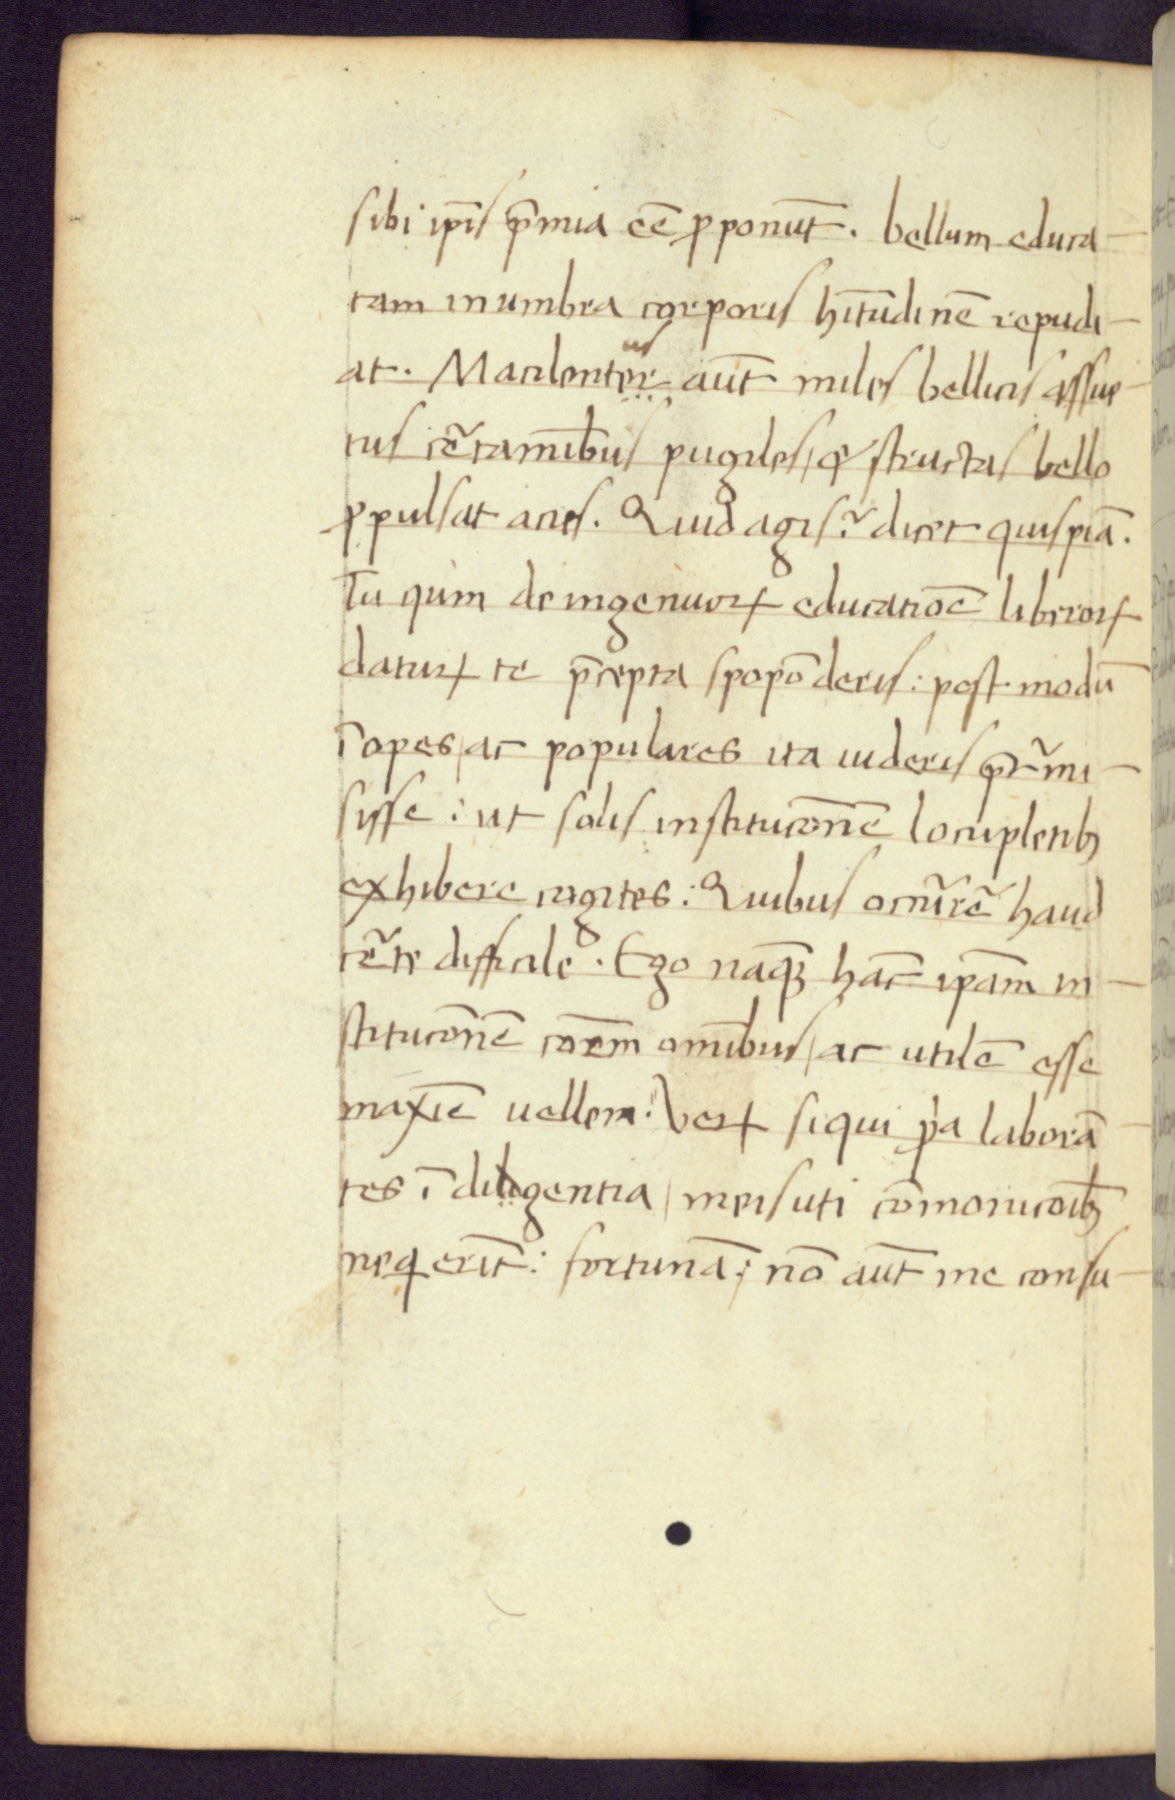 sibi ip̄is p̄mia eē ꝓponūt. bellum educa-
tam in umbra corporis hītudinē repudi-
at. Macilentus aūt miles bellicis assue-
tus cẽtamīb̄us pugiles, ⁊ structas bello
ꝓpulsat acies. Quid agis? dicet quispiā.
Tu qum de ingenuoꝝ educatiōe liberoꝝ
datuꝝ te p̄cepta spopōderis: post modū
īopes, ac populares ita uideris p̄t̃mi-
sisse: ut solis institucōnē locupletibꝫ
exhibere cogites: Quibus occur̃rẽ haud
cẽte difficile. Ego naqꝫ hāc ip̄am in-
stitucōnē cōem omībus, ac utilē esse
maxīe uellem: Veꝝ siqui p̄a laborā-
tes ī digentia, meis uti cōmonicōibꝫ
neq̇erīt: fortunā; nō aūt me consu-